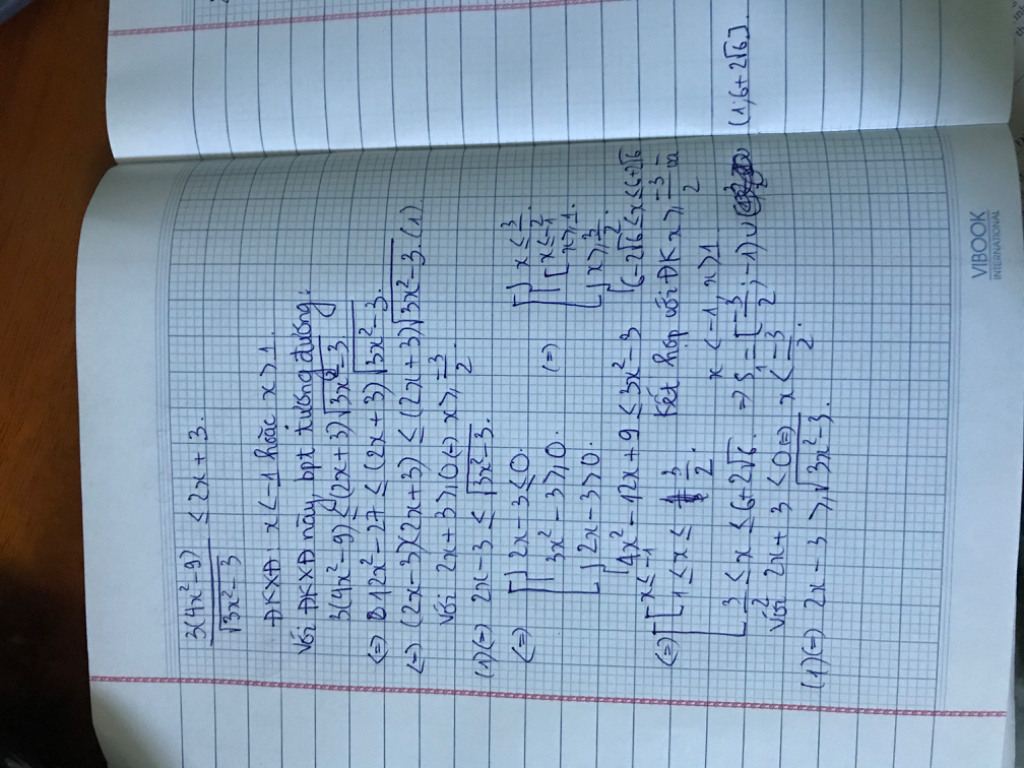 3(4x²-9)/√(3x²-3) ≤ 2x+3.
ĐKXĐ: x<-1 hoặc x>1.
Với ĐKXĐ này bpt tương đương:
3(4x²-9) ≤ (2x+3)√(3x²-3)
(=) 12x²-27 ≤ (2x+3)√(3x²-3).
(=) (2x-3)(2x+3) ≤ (2x+3)√(3x²-3). (1)
Với 2x+3 ≥ 0 (=) x ≥ -3/2.
(1)(=) 2x-3 ≤ √(3x²-3).
(=) [ { 2x-3 ≤ 0. 3x²-3 ≥ 0. { 2x-3 ≥ 0. 4x²-12x+9 ≤ 3x²-3 (=) [ { x ≤ 3/2. [ x ≤ -1 x ≥ 1. { x ≥ 3/2. 6-2√6 ≤ x ≤ 6+2√6
(=) [ [ x ≤ -1 1 ≤ x ≤ 3/2. Kết hợp với ĐK x ≥ -3/2
x < -1, x > 1
3/2 ≤ x ≤ 6+2√6. => S₁ = [-3/2; -1) ∪ (1; 6+2√6].
Với 2x+3 < 0 (=) x < -3/2.
(1)(=) 2x-3 ≥ √(3x²-3).
VIBOOK
INTERNATIONAL